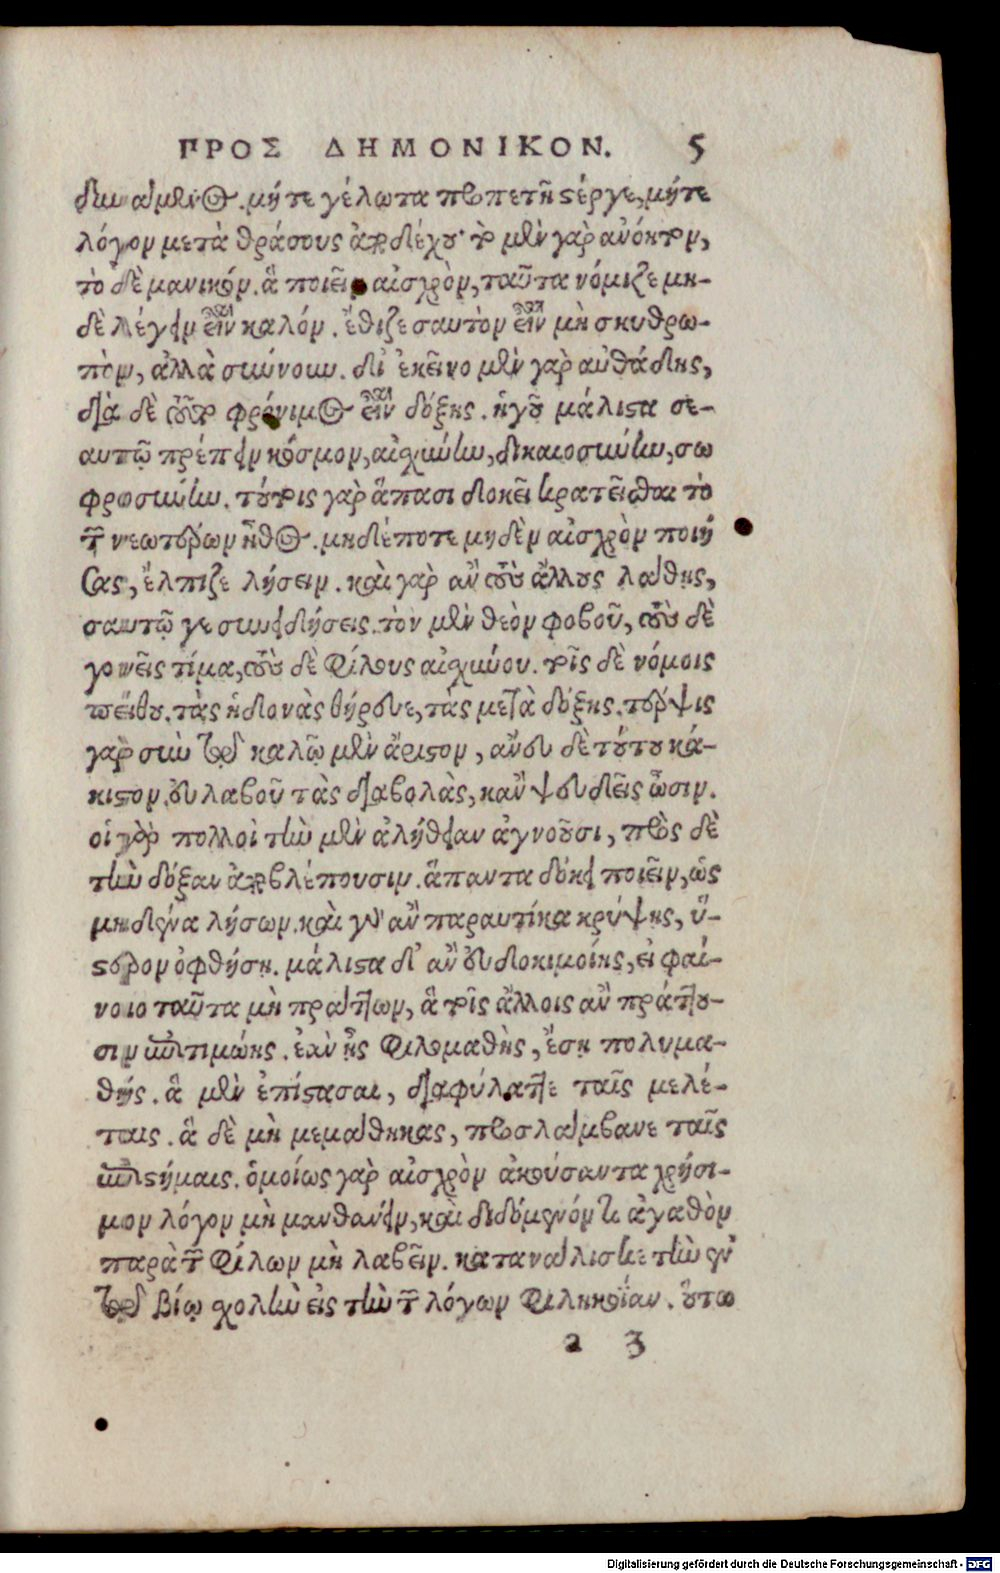 ΠΡΟΣ ΔΗΜΟΝΙΚΟΝ. 5
δυνάμενος. μήτε γέλωτα προπετῆ στέργε, μήτε
λόγον μετὰ θράσους ἀποδέχου· τὸ μὲν γὰρ ἀνόητον,
τὸ δὲ μανικόν. ἃ ποιεῖν αἰσχρὸν, ταῦτα νόμιζε μη-
δὲ λέγειν εἶναι καλόν. ἔθιζε σαυτὸν εἶναι μὴ σκυθρω-
πὸν, ἀλλὰ σύννουν. δι' ἐκεῖνο μὲν γὰρ αὐθάδης,
διὰ δὲ τοῦτο φρόνιμος εἶναι δόξεις. ἡγοῦ μάλιστα σε-
αυτῷ πρέπειν κόσμον, αἰσχύνην, δικαιοσύνην, σω
φροσύνην. τούτοις γὰρ ἅπασι δοκεῖ κρατεῖσθαι τὸ
τῶν νεωτέρων ἦθος. μηδέποτε μηδὲν αἰσχρὸν ποιή
σας, ἔλπιζε λήσειν. καὶ γὰρ ἂν τοὺς ἄλλους λάθῃς,
σαυτῷ γε συνειδήσεις. τὸν μὲν θεὸν φοβοῦ, τοὺς δὲ
γονεῖς τίμα, τοὺς δὲ φίλους αἰσχύνου. τοῖς δὲ νόμοις
πείθου. τὰς ἡδονὰς θήρευε, τὰς μετὰ δόξης. τέρψις
γὰρ σὺν τῷ καλῷ μὲν ἄριστον, ἄνευ δὲ τούτου κά-
κιστον. εὐλαβοῦ τὰς διαβολὰς, κἂν ψευδεῖς ὦσιν.
οἱ γὰρ πολλοὶ τὴν μὲν ἀλήθειαν ἀγνοοῦσι, πρὸς δὲ
τὴν δόξαν ἀποβλέπουσιν. ἅπαντα δόκει ποιεῖν, ὡς
μηδένα λήσων. καὶ γὰρ ἂν παραυτίκα κρύψῃς, ὕ-
στερον ὀφθήσῃ. μάλιστα δ' ἂν εὐδοκιμοίης, εἰ φαί-
νοιο ταῦτα μὴ πράττων, ἃ τοῖς ἄλλοις ἂν πράττου-
σιν ἐπιτιμώης. ἐὰν ᾖς φιλομαθὴς, ἔσῃ πολυμα-
θής. ἃ μὲν ἐπίστασαι, διαφύλαττε ταῖς μελέ-
ταις. ἃ δὲ μὴ μεμάθηκας, προσλάμβανε ταῖς
ἐπιστήμαις. ὁμοίως γὰρ αἰσχρὸν ἀκούσαντα χρήσι-
μον λόγον μὴ μανθάνειν, καὶ διδόμενόν τι ἀγαθὸν
παρὰ τῶν φίλων μὴ λαβεῖν. κατανάλισκε τὴν ἐν
τῷ βίῳ σχολὴν εἰς τὴν τῶν λόγων φιληκοΐαν. οὕτω
a 3
Digitalisierung gefördert durch die Deutsche Forschungsgemeinschaft - DFG